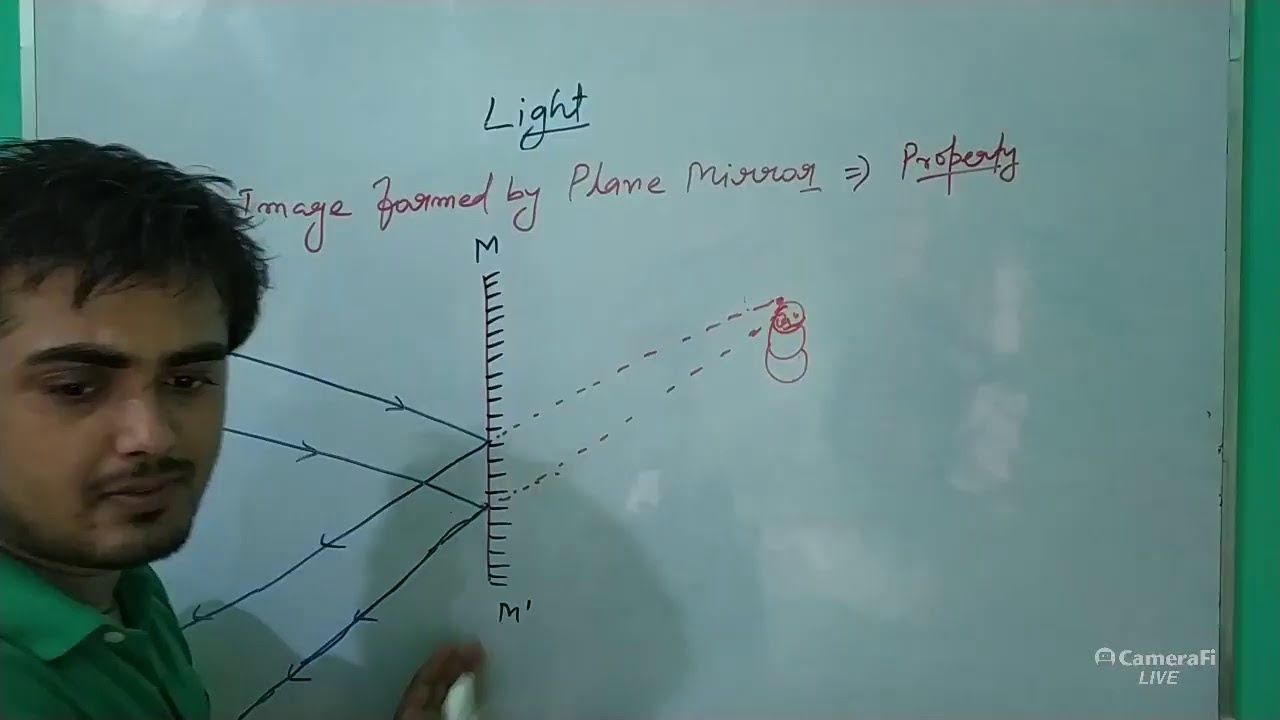 Light
Image formed by Plane Mirror ⇒ Property
M
M'
CameraFi
LIVE